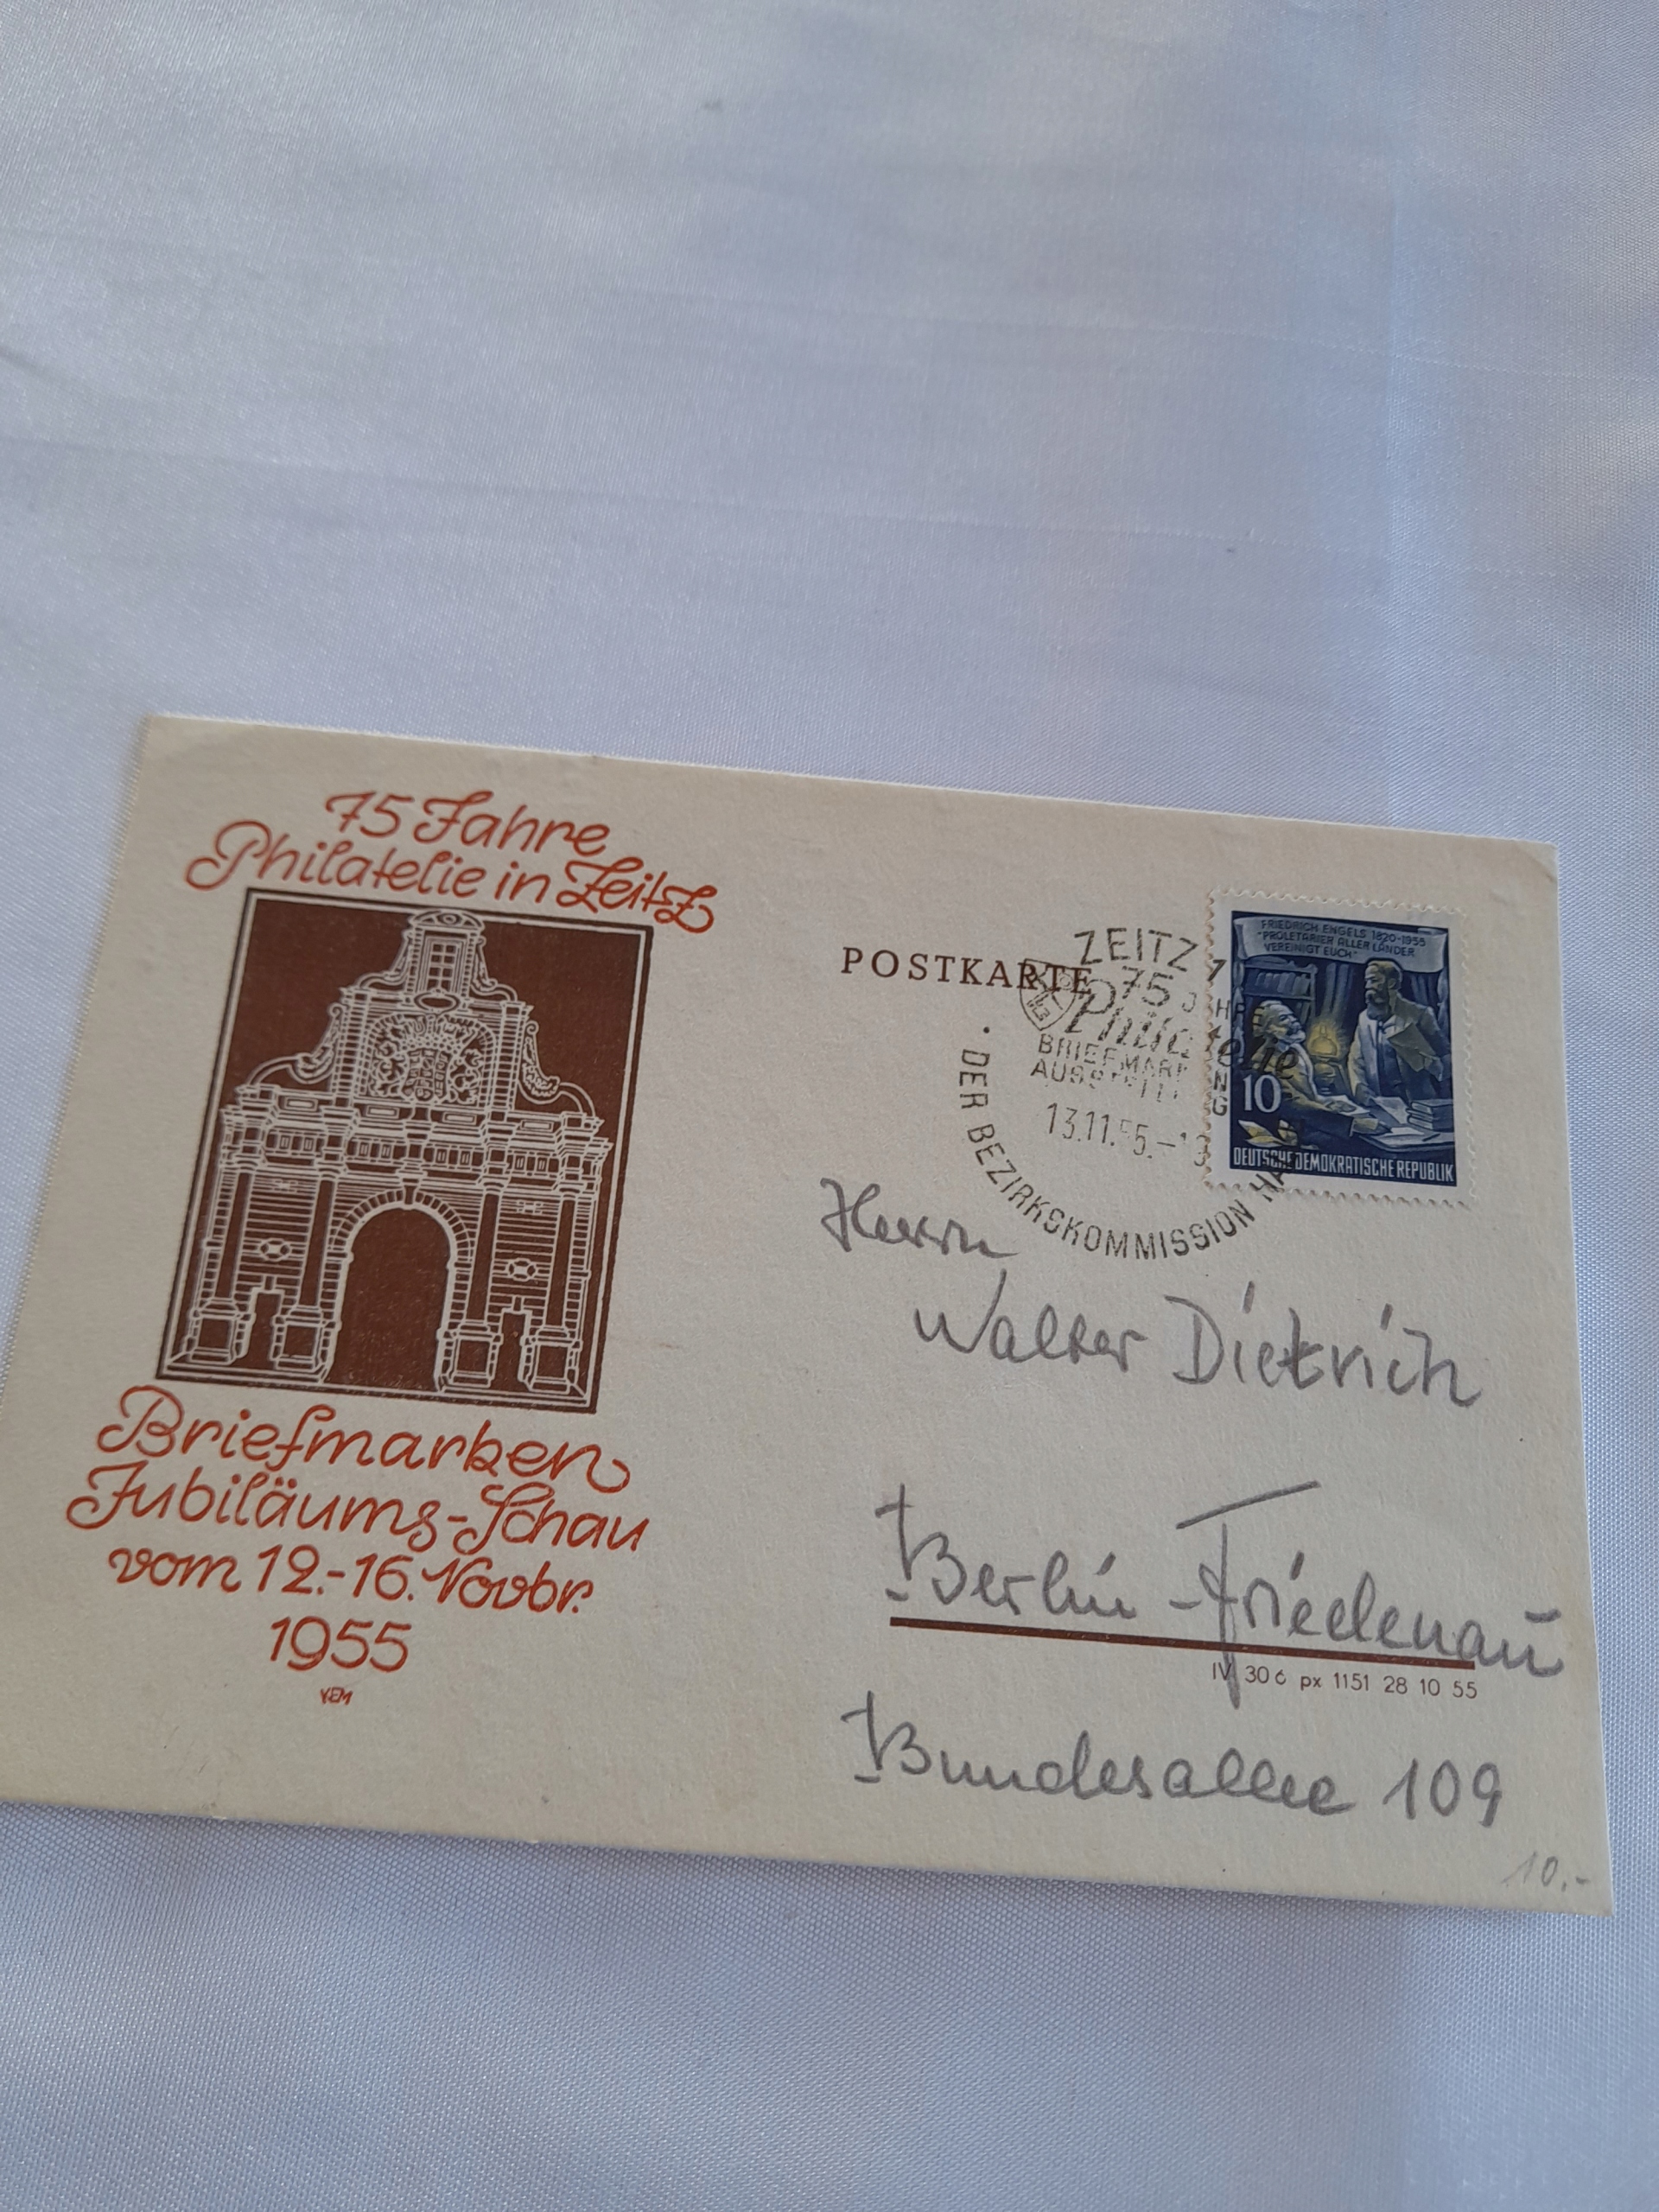 75 Jahre
Philatelie in Zeitz
Briefmarken
Jubiläums-Schau
vom 12.-16. Novbr.
1955
KEM
POSTKARTE
ZEITZ 1
75
BRIEFMARK
13.11.55.-
DER BEZIRKSKOMMISSION
FRIEDRICH ENGELS 1820-1955
"PROLETARIER ALLER LÄNDER
VEREINIGT EUCH"
10
DEUTSCHE DEMOKRATISCHE REPUBLIK
Herrn
Walter Dietrich
Berlin-Friedenau
IV 30 6 px 1151 28 10 55
Bundesallee 109
10.-